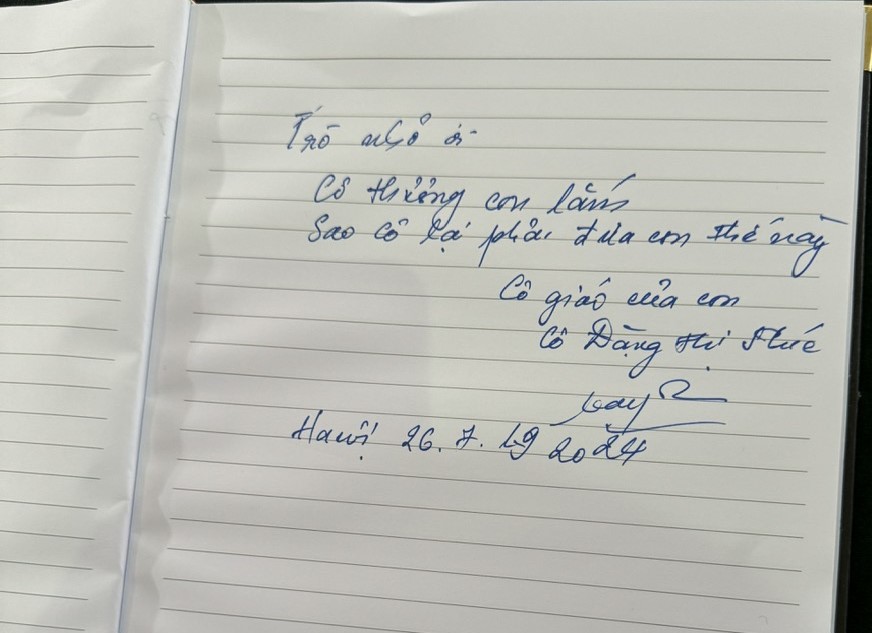 Trò nhỏ ơi
Cô thương con lắm
Sao cô lại phải đưa con thế này
Cô giáo của con
Cô Đặng Thị Phúc
Hanội 26.7.19 2024